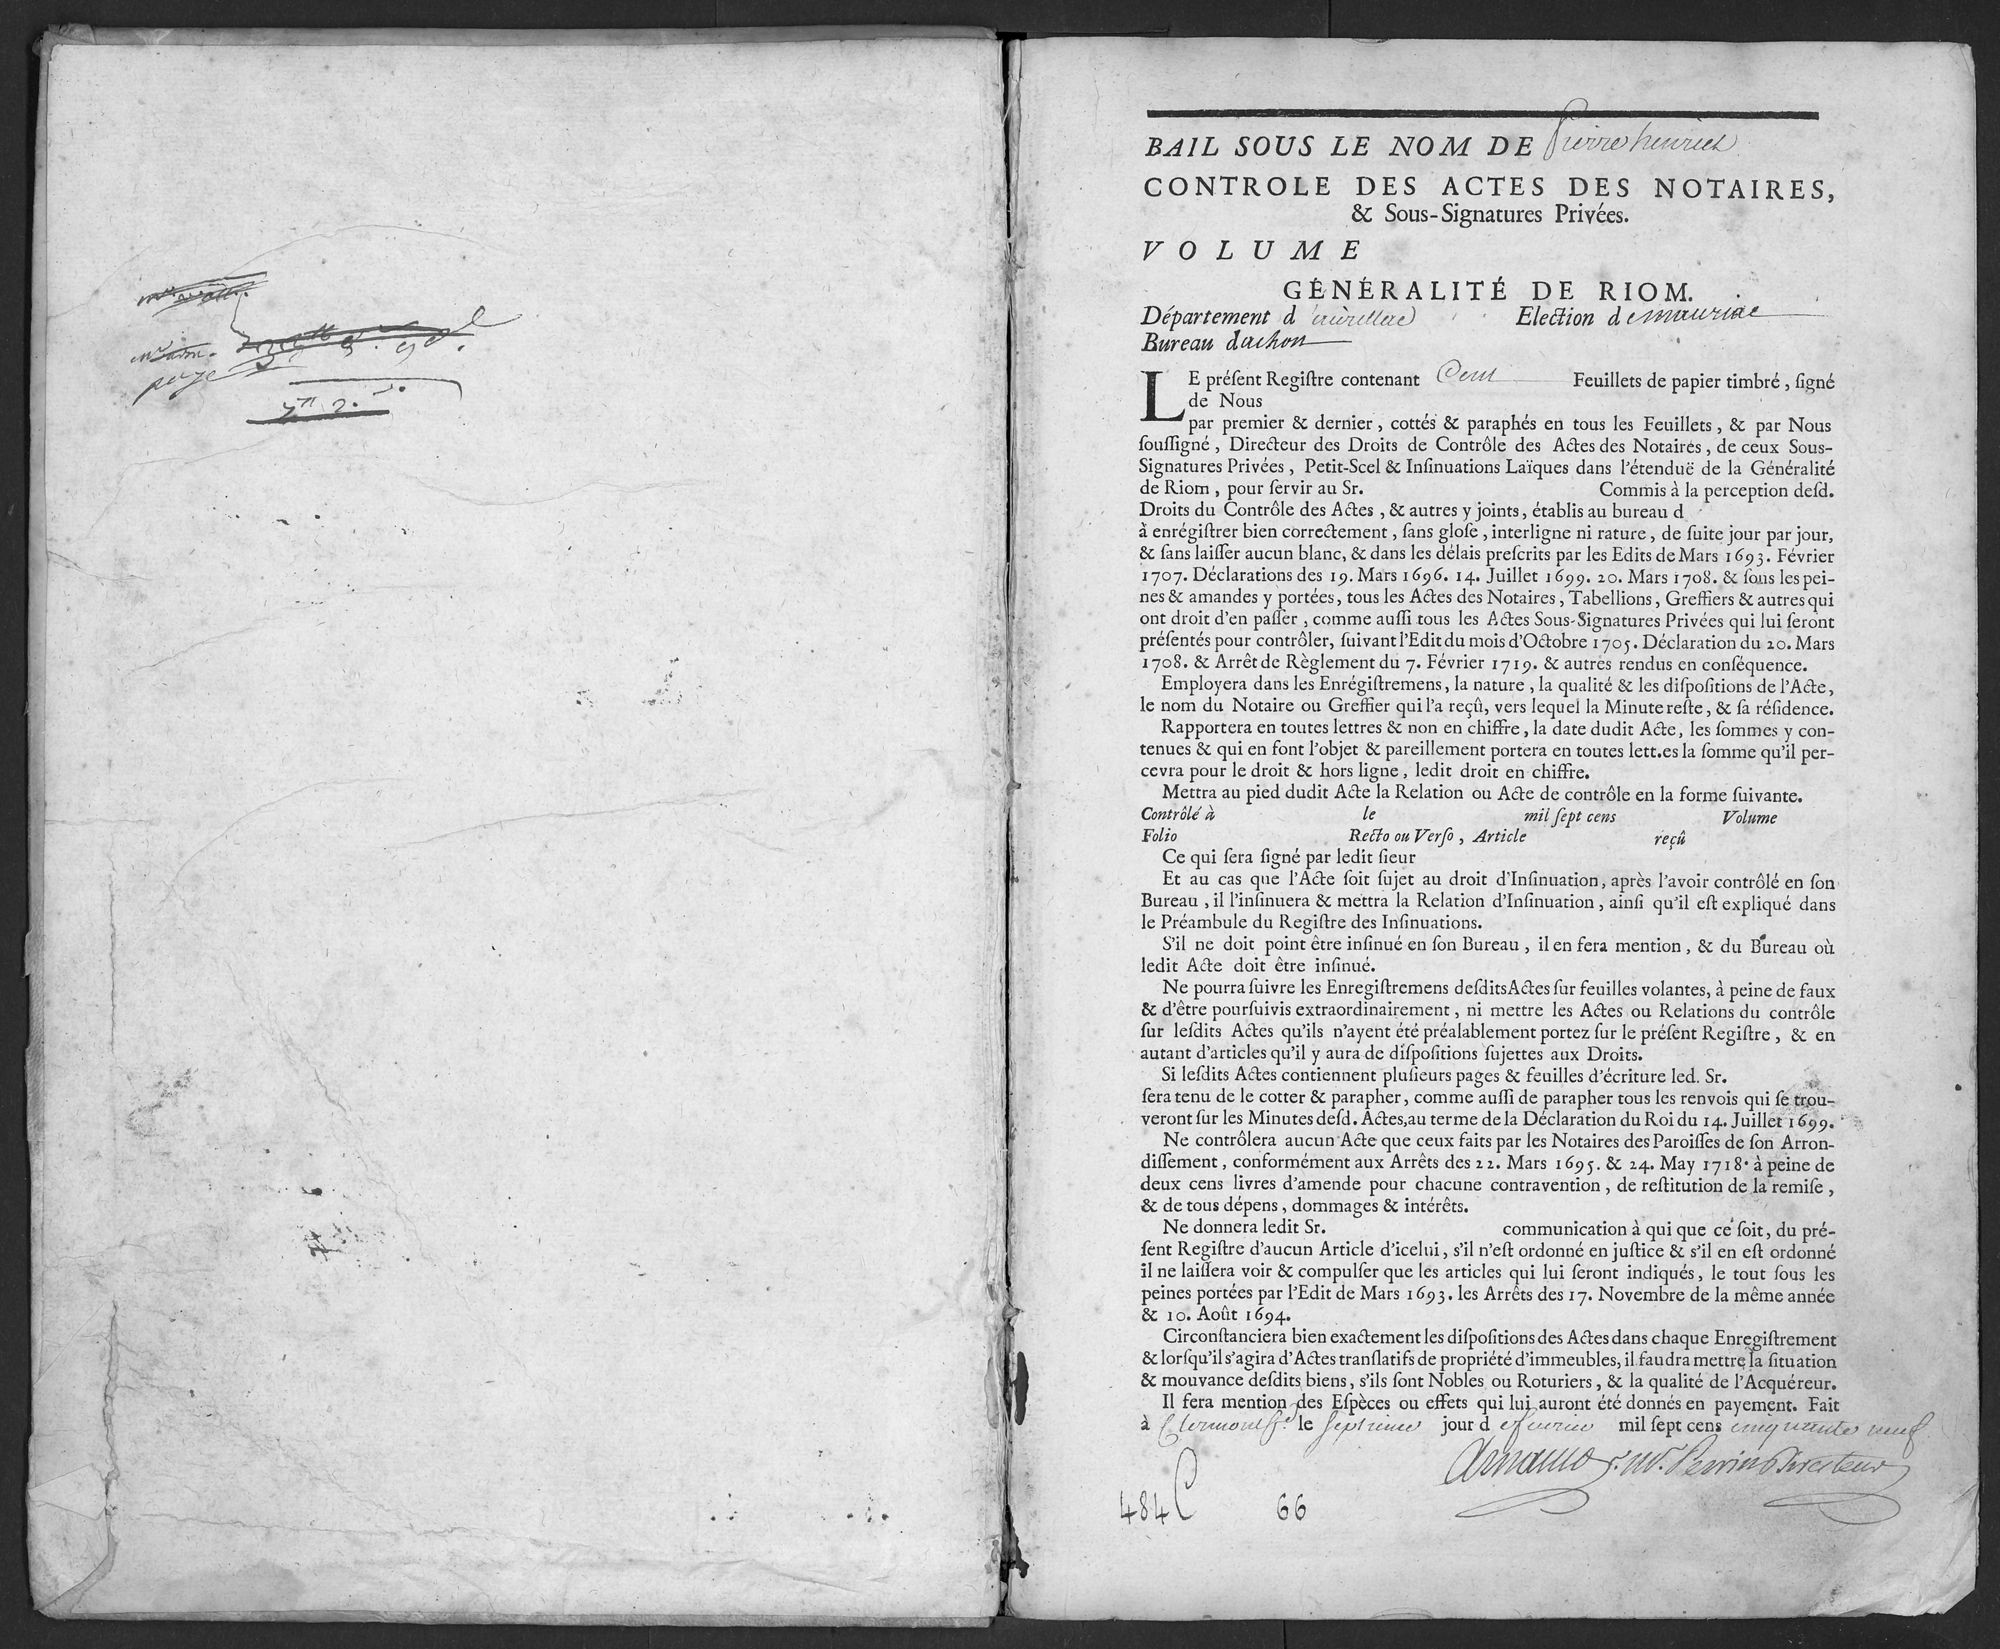 BAIL SOUS LE NOM DE Pierre henriet
CONTROLE DES ACTES DES NOTAIRES,
& Sous-Signatures Privées.
VOLUME
GÉNÉRALITÉ DE RIOM.
Département d'aurillac Election de mauriac
Bureau dachon
LE préſent Regiſtre contenant Cent Feuillets de papier timbré, ſigné
de Nous
par premier & dernier, cottés & paraphés en tous les Feuillets, & par Nous
ſouſſigné, Directeur des Droits de Contrôle des Actes des Notaires, de ceux Sous-
Signatures Privées, Petit-Scel & Inſinuations Laïques dans l'étenduë de la Généralité
de Riom, pour ſervir au Sr. Commis à la perception deſd.
Droits du Contrôle des Actes, & autres y joints, établis au bureau d
à enrégiſtrer bien correctement, ſans gloſe, interligne ni rature, de ſuite jour par jour,
& ſans laiſſer aucun blanc, & dans les délais preſcrits par les Edits de Mars 1693. Février
1707. Déclarations des 19. Mars 1696. 14. Juillet 1699. 20. Mars 1708. & ſous les pei-
nes & amandes y portées, tous les Actes des Notaires, Tabellions, Greffiers & autres qui
ont droit d'en paſſer, comme auſſi tous les Actes Sous-Signatures Privées qui lui ſeront
préſentés pour contrôler, ſuivant l'Edit du mois d'Octobre 1705. Déclaration du 20. Mars
1708. & Arrêt de Règlement du 7. Février 1719. & autres rendus en conſéquence.
Employera dans les Enrégiſtremens, la nature, la qualité & les diſpoſitions de l'Acte,
le nom du Notaire ou Greffier qui l'a reçû, vers lequel la Minute reſte, & ſa réſidence.
Rapportera en toutes lettres & non en chiffre, la date dudit Acte, les ſommes y con-
tenues & qui en font l'objet & pareillement portera en toutes lett.es la ſomme qu'il per-
cevra pour le droit & hors ligne, ledit droit en chiffre.
Mettra au pied dudit Acte la Relation ou Acte de contrôle en la forme ſuivante.
Contrôlé à le mil ſept cens Volume
Folio Recto ou Verſo, Article reçû
Ce qui ſera ſigné par ledit ſieur
Et au cas que l'Acte ſoit ſujet au droit d'Inſinuation, après l'avoir contrôlé en ſon
Bureau, il l'inſinuera & mettra la Relation d'Inſinuation, ainſi qu'il eſt expliqué dans
le Préambule du Regiſtre des Inſinuations.
S'il ne doit point être inſinué en ſon Bureau, il en fera mention, & du Bureau où
ledit Acte doit être inſinué.
Ne pourra ſuivre les Enregiſtremens deſdits Actes ſur feuilles volantes, à peine de faux
& d'être pourſuivis extraordinairement, ni mettre les Actes ou Relations du contrôle
ſur leſdits Actes qu'ils n'ayent été préalablement portez ſur le préſent Regiſtre, & en
autant d'articles qu'il y aura de diſpoſitions ſujettes aux Droits.
Si leſdits Actes contiennent pluſieurs pages & feuilles d'écriture led. Sr.
ſera tenu de le cotter & parapher, comme auſſi de parapher tous les renvois qui ſe trou-
veront ſur les Minutes deſd. Actes, au terme de la Déclaration du Roi du 14. Juillet 1699.
Ne contrôlera aucun Acte que ceux faits par les Notaires des Paroiſſes de ſon Arron-
diſſement, conformément aux Arrêts des 22. Mars 1695. & 24. May 1718. à peine de
deux cens livres d'amende pour chacune contravention, de reſtitution de la remiſe,
& de tous dépens, dommages & intérêts.
Ne donnera ledit Sr. communication à qui que ce ſoit, du pré-
ſent Regiſtre d'aucun Article d'icelui, s'il n'eſt ordonné en juſtice & s'il en eſt ordonné
il ne laiſſera voir & compulſer que les articles qui lui ſeront indiqués, le tout ſous les
peines portées par l'Edit de Mars 1693. les Arrêts des 17. Novembre de la même année
& 10. Août 1694.
Circonſtanciera bien exactement les diſpoſitions des Actes dans chaque Enregiſtrement
& lorſqu'il s'agira d'Actes tranſlatifs de propriété d'immeubles, il faudra mettre la ſituation
& mouvance deſdits biens, s'ils ſont Nobles ou Roturiers, & la qualité de l'Acquéreur.
Il fera mention des Eſpèces ou effets qui lui auront été donnés en payement. Fait
à Clermont fd le septieme jour de fevrier mil ſept cens cinquante neuf
Perrin Directeur
484 C 66